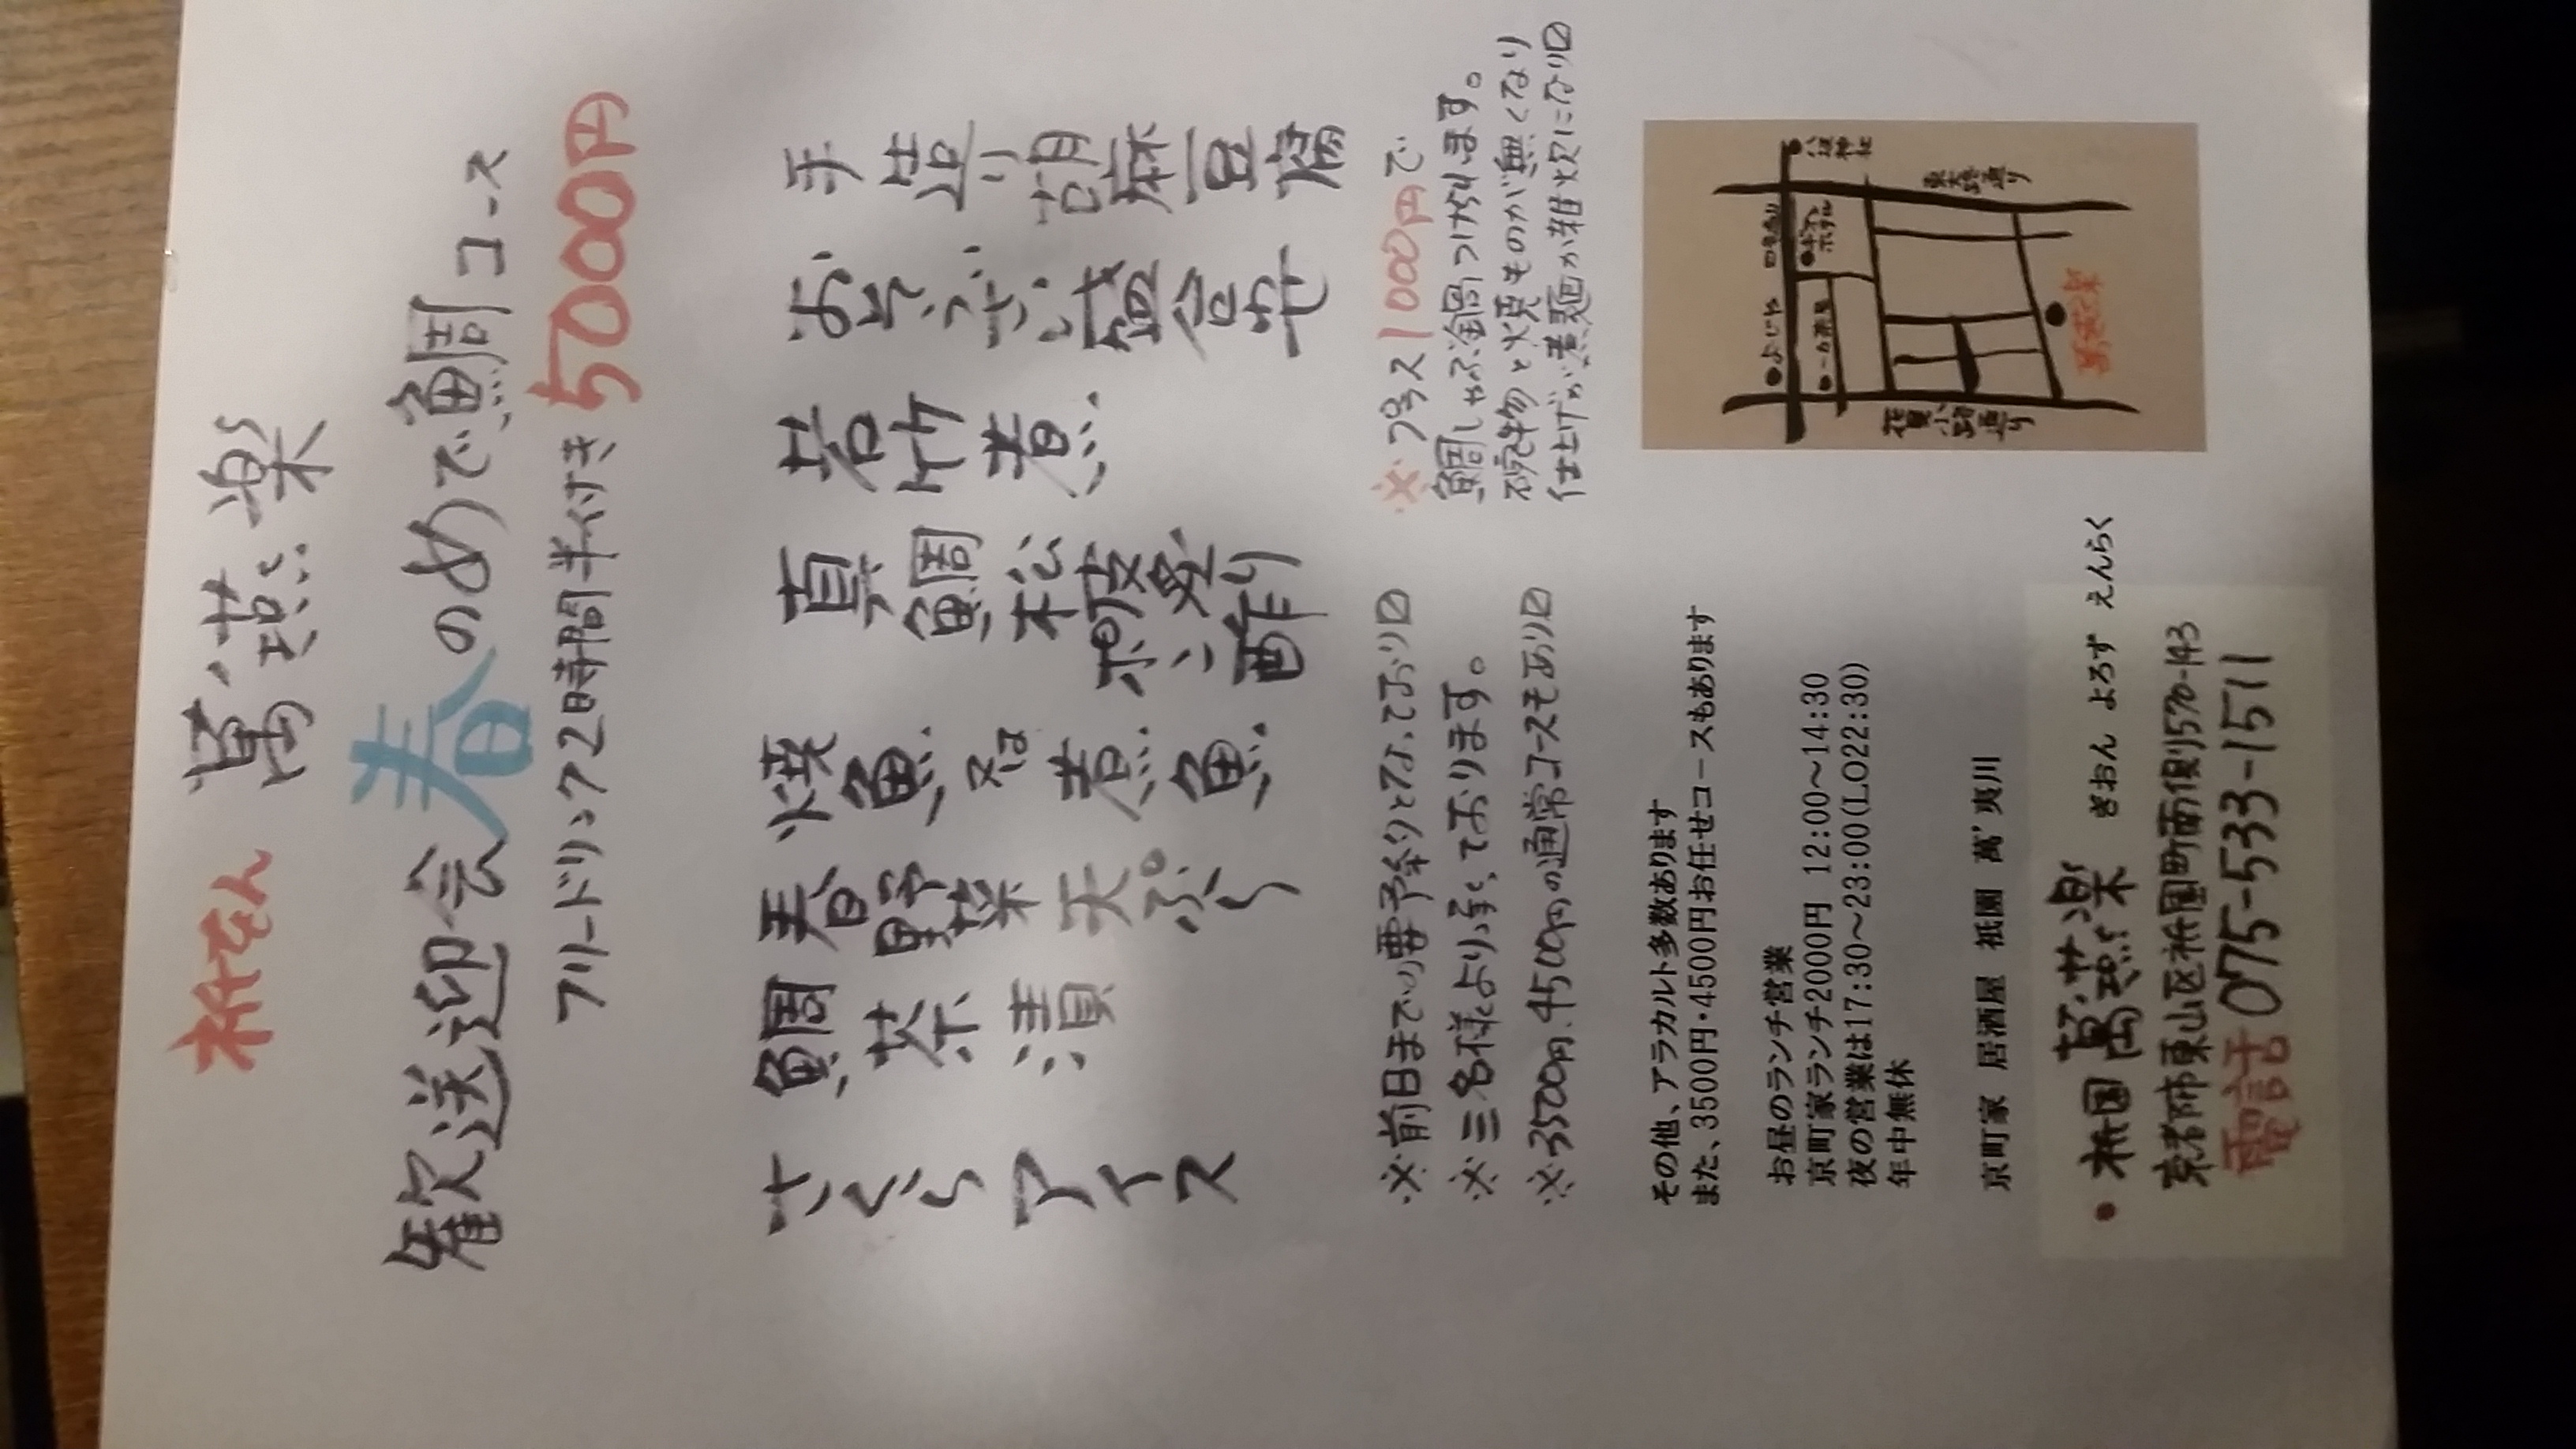 祇をん 萬燕楽
歓送迎会春のめで鯛コース
フリードリンク2時間半付き5000円
手造り胡麻豆腐
おぞうざい盛合せ
若竹煮
真鯛松皮造り
ポン酢
焼魚又は煮魚
春野菜天ぷら
鯛茶漬
さくらアイス
※プラス1000円で
鯛しゃぶ鍋つけれます。
椀物と焼ものが無くなり
仕上げが煮麺か雑炊になり〼
※前日までの要予約となっており〼
※三名様より承っております。
※3500円.4500円の通常コースもあり〼
その他、アラカルト多数あります
また、3500円・4500円お任せコースもあります
お昼のランチ営業
京町家ランチ2000円 12:00〜14:30
夜の営業は17:30〜23:00(LO22:30)
年中無休
京町家 居酒屋 祇園 萬 夷川
●よしや
四条通り
八坂神社
●一力茶屋
●ギオンホテル
東大路通り
花見小路通り
萬燕楽
●祇園 萬燕楽 ぎおん よろず えんらく
京都市東山区祇園町南側570-143
電話 075-533-1511